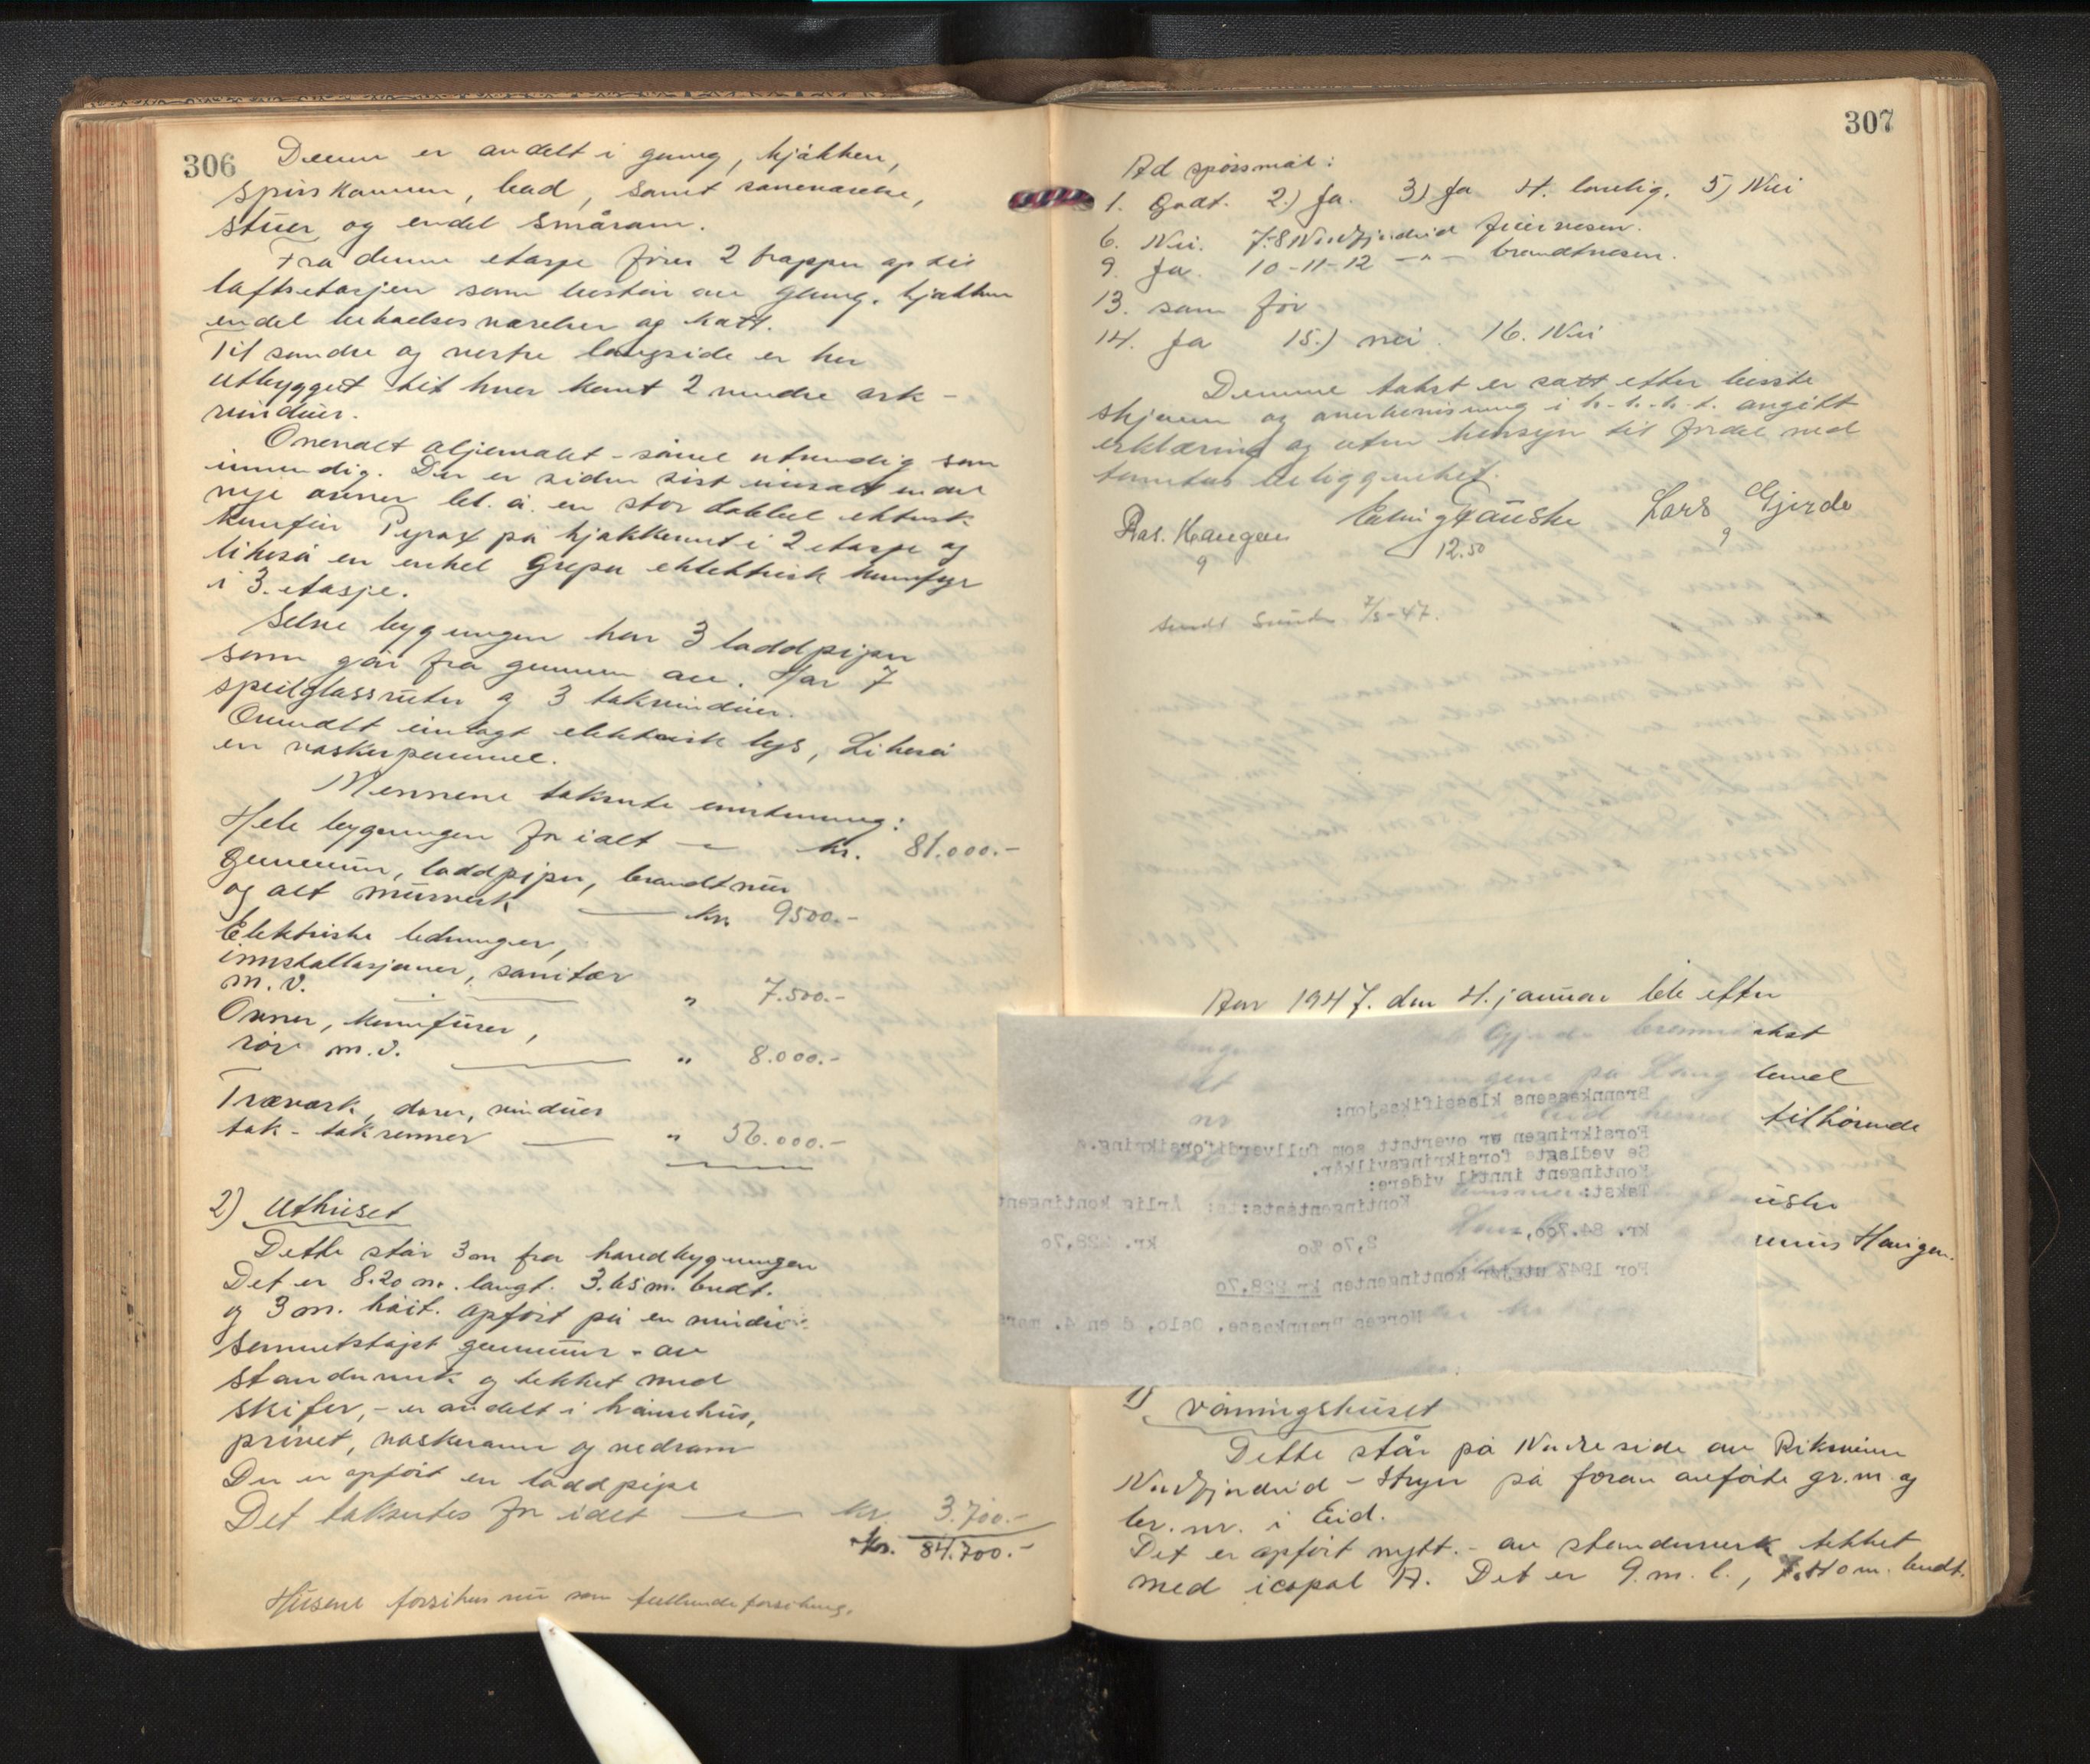 306
Denne er andelt i gang, kjøkken,
spiskammer, bad, samt soveværelse,
stuer og endel smårom.
Fra denne etasje fører 2 trapper op til
loftsetasjen som består av gang, kjøkken
endel beboelsesværelser og kott.
Til søndre og vestre langside er her
utbygget til hver kant 2 mindre ark-
vinduer.
Overalt oljemalet - såvel utvendig som
innvendig. Der er siden sist innsatt endel
nye ovner bl. a. en stor dobbel elektrisk
komfür Pyrox på kjøkkenet i 2 etasje og
likeså en enkel Grepa elektrisk komfyr
i 3. etasje.
Selve bygningen har 3 loddpiper
som går fra grunnen av. Har 7
speilglassruter og 3 takvinduer.
Overalt innlagt elektrisk lys, Likeså
en vaskerpanne.
Mennene taksnte innstemmig:
Hele bygningen for ialt — kr. 81.000.-
Grunnmur, loddpiper, brandtmur
og alt murverk — kr. 9500.-
Elektriske ledninger,
innstallasjoner, sanitær
m.v. — " 7.500.-
Ovner, komfürer,
rør m.v. — " 8.000.-
Treverk, dører, vinduer
tak - takrenner — " 56.000.-
2) Uthuset
Dette står 3 m fra hovedbygningen
Det er 8.20 m. langt. 3.65 m. bredt.
og 3 m. høit. opført på en mindre
sementstøpt grunnmur - av
standerverk og tekket med
skifer, - er andelt i hønsehus,
privet, vaskerom og vedrom
Der er opført en loddpipe
Det taksertes for ialt — kr. 3.700.-
kr. 84.700.-
Husene forsikres nu som fullverdiforsikring.
307
Ad spørsmål:
1. Godt. 2.) Ja. 3) Ja 4. lovlig. 5) Nei
6. Nei. 7-8 Nordfjordeid feiervesen.
9. Ja. 10-11-12 -"- brandtvesen.
13. som før
14. Ja 15.) nei. 16. Nei
Denne takst er satt efter beste
skjønn og overbevisning i h.t. angitt
erklæring og uten hensyn til fordel ved
tomtens beliggenhet.
Ras. Haugen Erling Fauske Lars Gjerde
9 12.50 9
sendt 7/3-47.
Aar 1947. den 4. januar ble efter
Gjerde brann takst
på Lang level
nr i Eid herred tilhørende
uske
smus Haugen.
Brannkassens klassifikasjon:
Forsikringen er overtatt som fullverdiforsikring.
Se vedlagte forsikringsvilkår.
Kontingent inntil videre:
Takst: Kontingentsats: Årlig kontingent
kr. 84.700, 2,70 ‰ kr. 228,70
For 1947 utgjør kontingenten kr 228,70
Norges Brannkasse, Oslo, d en 4. mars
1) Våningshuset
Dette står på Nordre side av Riksveien
Nordfjordeid - Stryn på foran anførte gr.nr. og
br. nr. i Eid.
Det er opført nytt. - av standerverk tekket
med icopal A. Det er 9. m. l., 7.40 m. bredt.